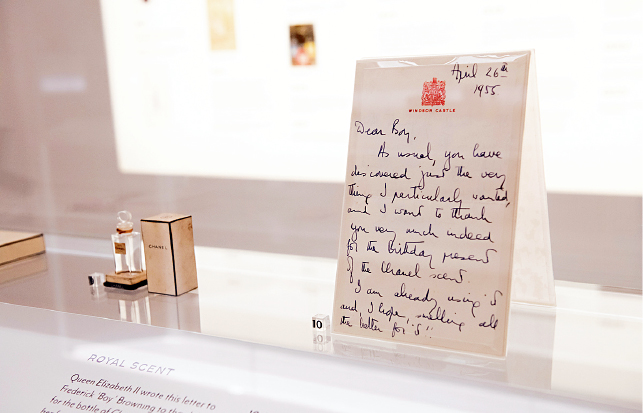 April 26th
1955
WINDSOR CASTLE
Dear Boy,
As usual, you have
discovered just the very
thing I particularly wanted,
and I want to thank
you very much indeed
for the birthday present
of the Chanel scent.
I am already using it
and, I hope, smelling all
the better for it!!
CHANEL
10
ROYAL SCENT
Queen Elizabeth II wrote this letter to
Frederick 'Boy' Browning to
for the bottle of